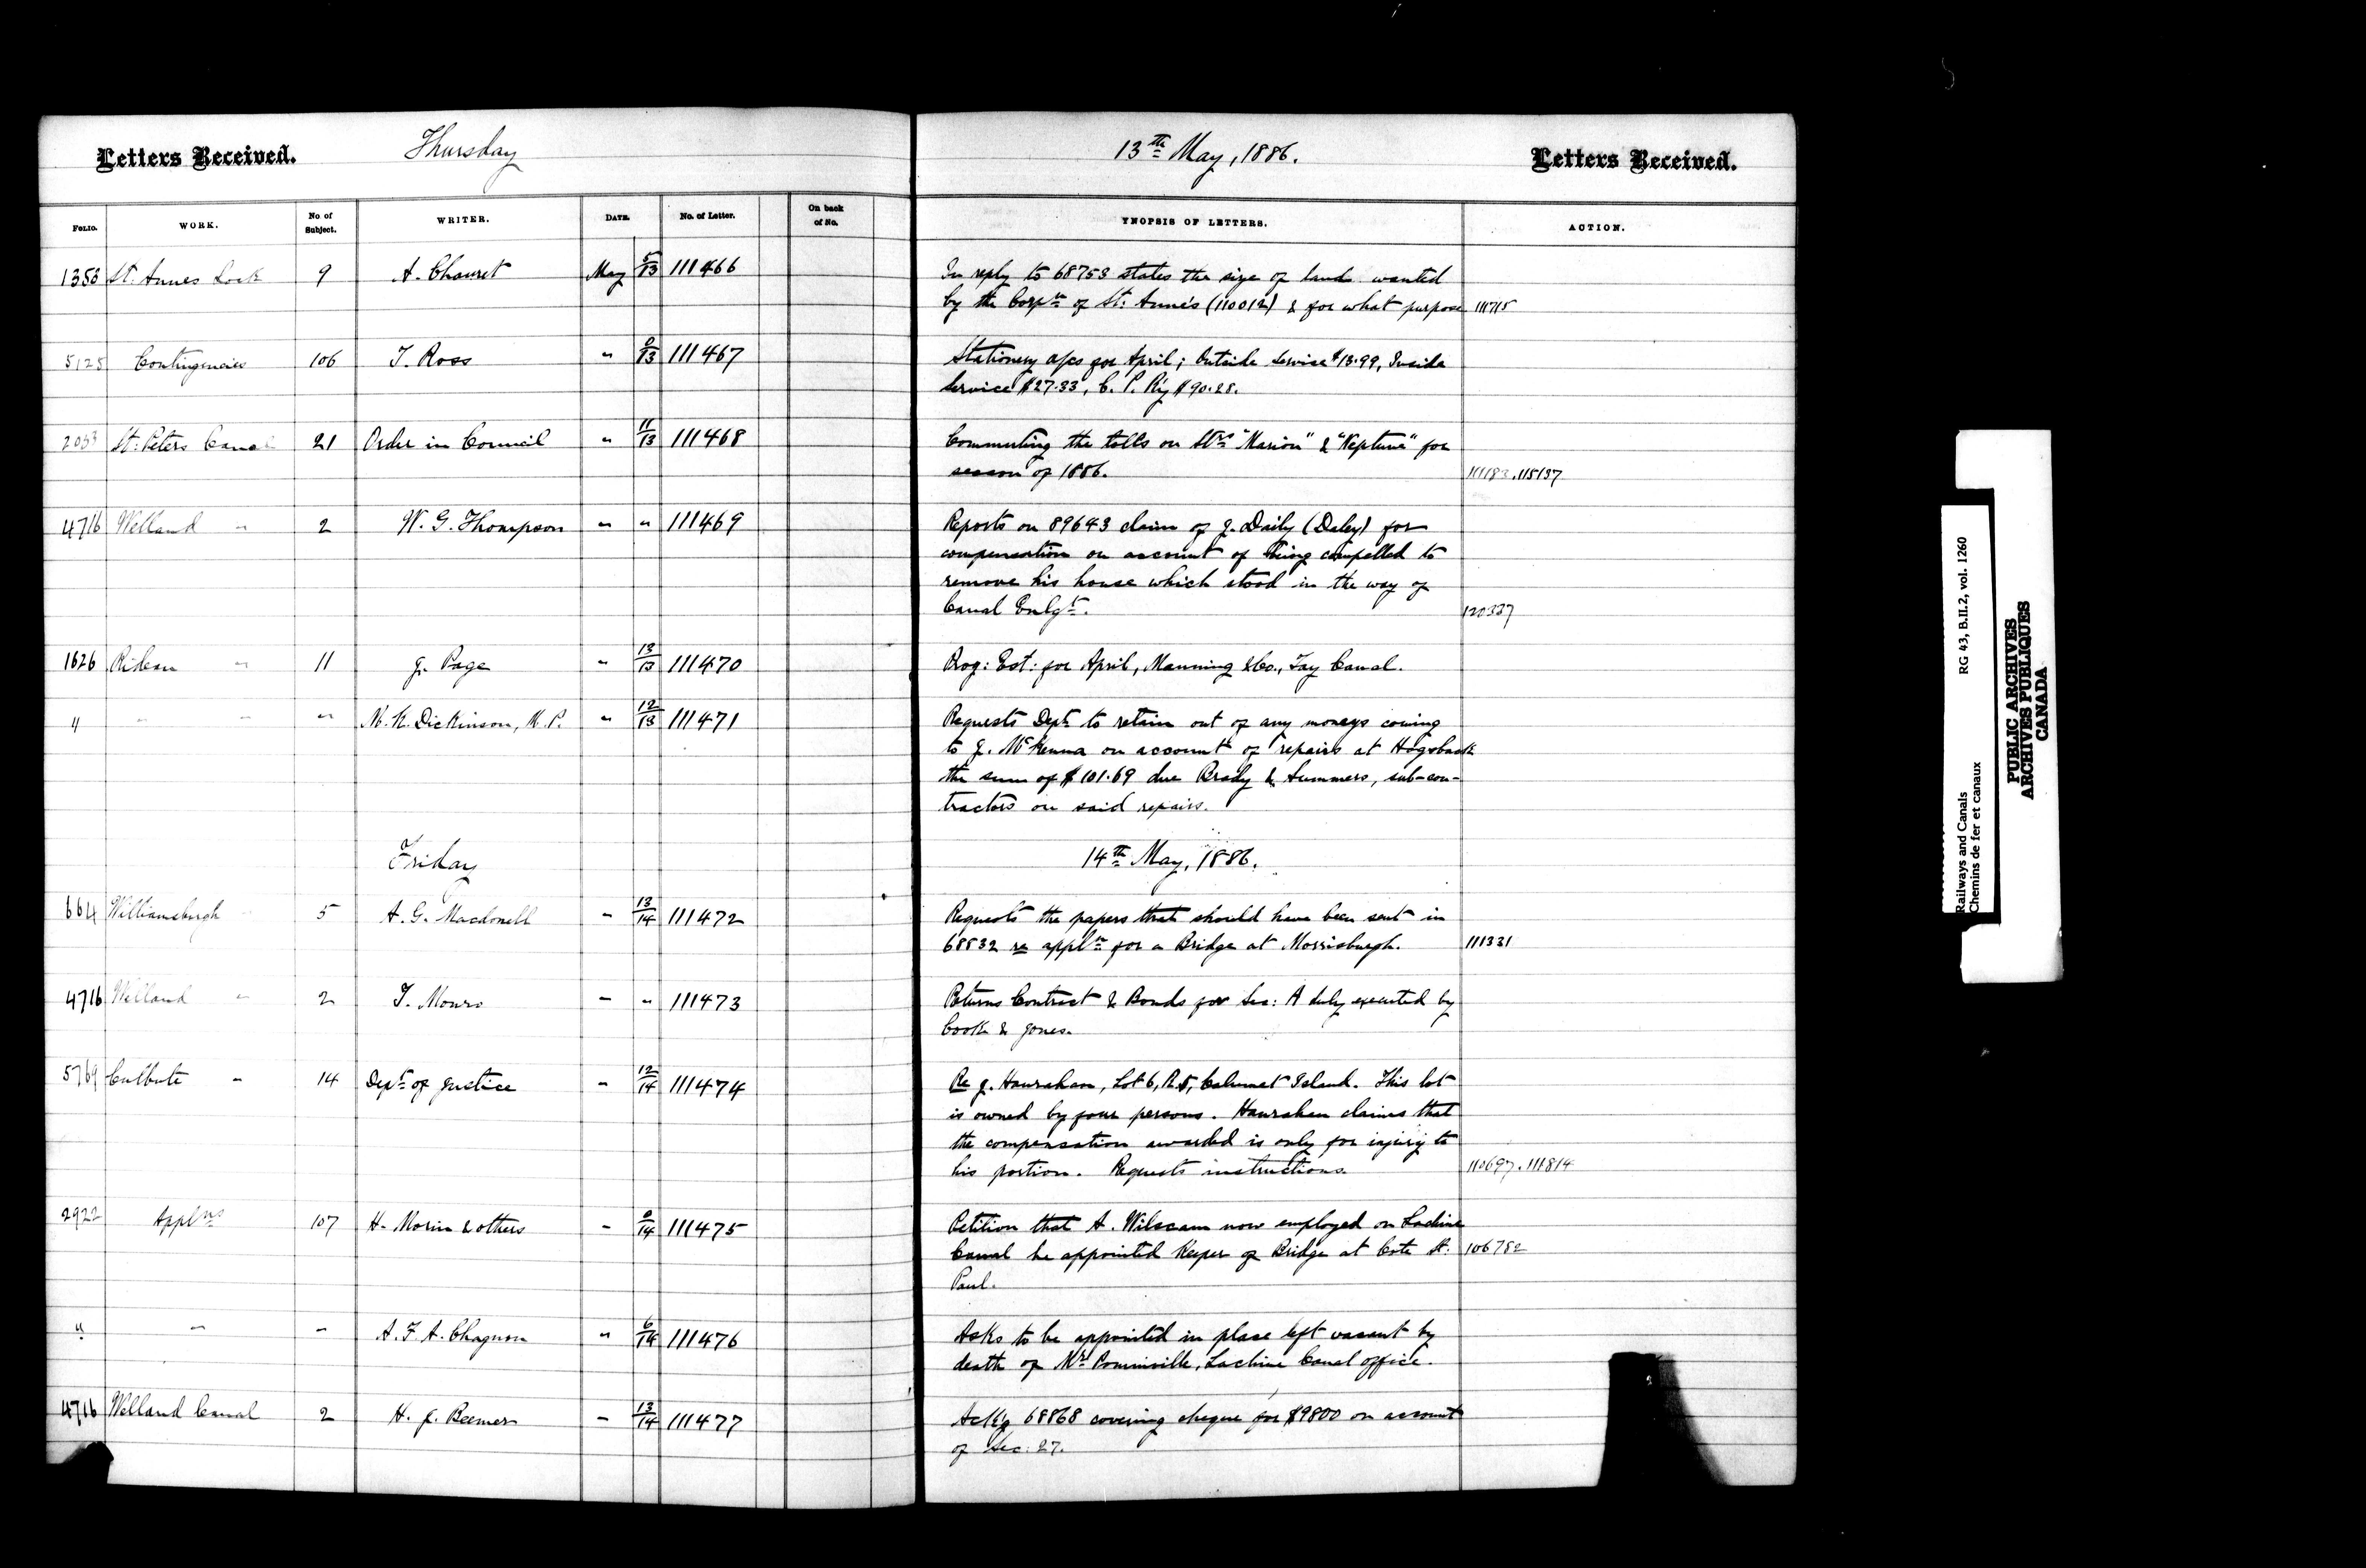 Letters Received. Thursday 13th May, 1886. Letters Received.
FOLIO. WORK. No of Subject. WRITER. DATE. No. of Letter. On back of No. YNOPSIS OF LETTERS. ACTION.
1353 St. Annes Lock 9 A. Chauret May 5/13 111466 In reply to 68753 states the size of land wanted
by the Corpn of St. Anne's (110012) & for what purpose 111715
5125 Contingencies 106 T. Ross " 0/13 111467 Stationery a/cs for April; Outside Service $13.99, Inside
Service $27.33, C. P. Ry $90.28.
2053 St: Peters Canal 21 Order in Council " 11/13 111468 Commuting the tolls on Strs "Marion" & "Neptune" for
season of 1886. 111183.115137
4716 Welland " 2 W. G. Thompson " " 111469 Reports on 89643 claim of J. Daily (Daley) for
compensation on account of being compelled to
remove his house which stood in the way of
Canal Enlgt. 120337
1626 Rideau " 11 J. Page " 13/13 111470 Prog: Est: for April, Manning & Co., Tay Canal.
" " " " M. K. Dickinson, M. P. " 12/13 111471 Requests Dept to retain out of any moneys coming
to J. McKenna on account of repairs at Hogsback
the sum of $101.69 due Brady & Summers, sub-con-
tractors on said repairs.
Friday 14th May, 1886.
664 Williamsburgh " 5 A. G. Macdonell " 13/14 111472 Requests the papers that should have been sent in
68832 re appln for a Bridge at Morrisburgh. 111331
4716 Welland " 2 T. Monro " " 111473 Returns Contract & Bonds for Sec: A duly executed by
Cook & Jones.
5769 Culbute " 14 Dept of Justice " 12/14 111474 Re J. Hanrahan, Lot 6, R.5, Calumet Island. This lot
is owned by four persons. Hanrahan claims that
the compensation awarded is only for injury to
his portion. Requests instructions. 110697.111814
2922 Applns 107 H. Morin & others " 0/14 111475 Petition that A. Wilscam now employed on Lachine
Canal be appointed Keeper of Bridge at Cote St. 106782
Paul.
" " " A. F. A. Chagnon " 6/14 111476 Asks to be appointed in place left vacant by
death of Mr Pominville, Lachine Canal office.
4716 Welland Canal 2 H. J. Beemer " 13/14 111477 Ackg 68868 covering cheque for $9800 on account
of Sec: 27.
RG 43, B.II.2, vol. 1260
Railways and Canals
Chemins de fer et canaux
PUBLIC ARCHIVES
ARCHIVES PUBLIQUES
CANADA